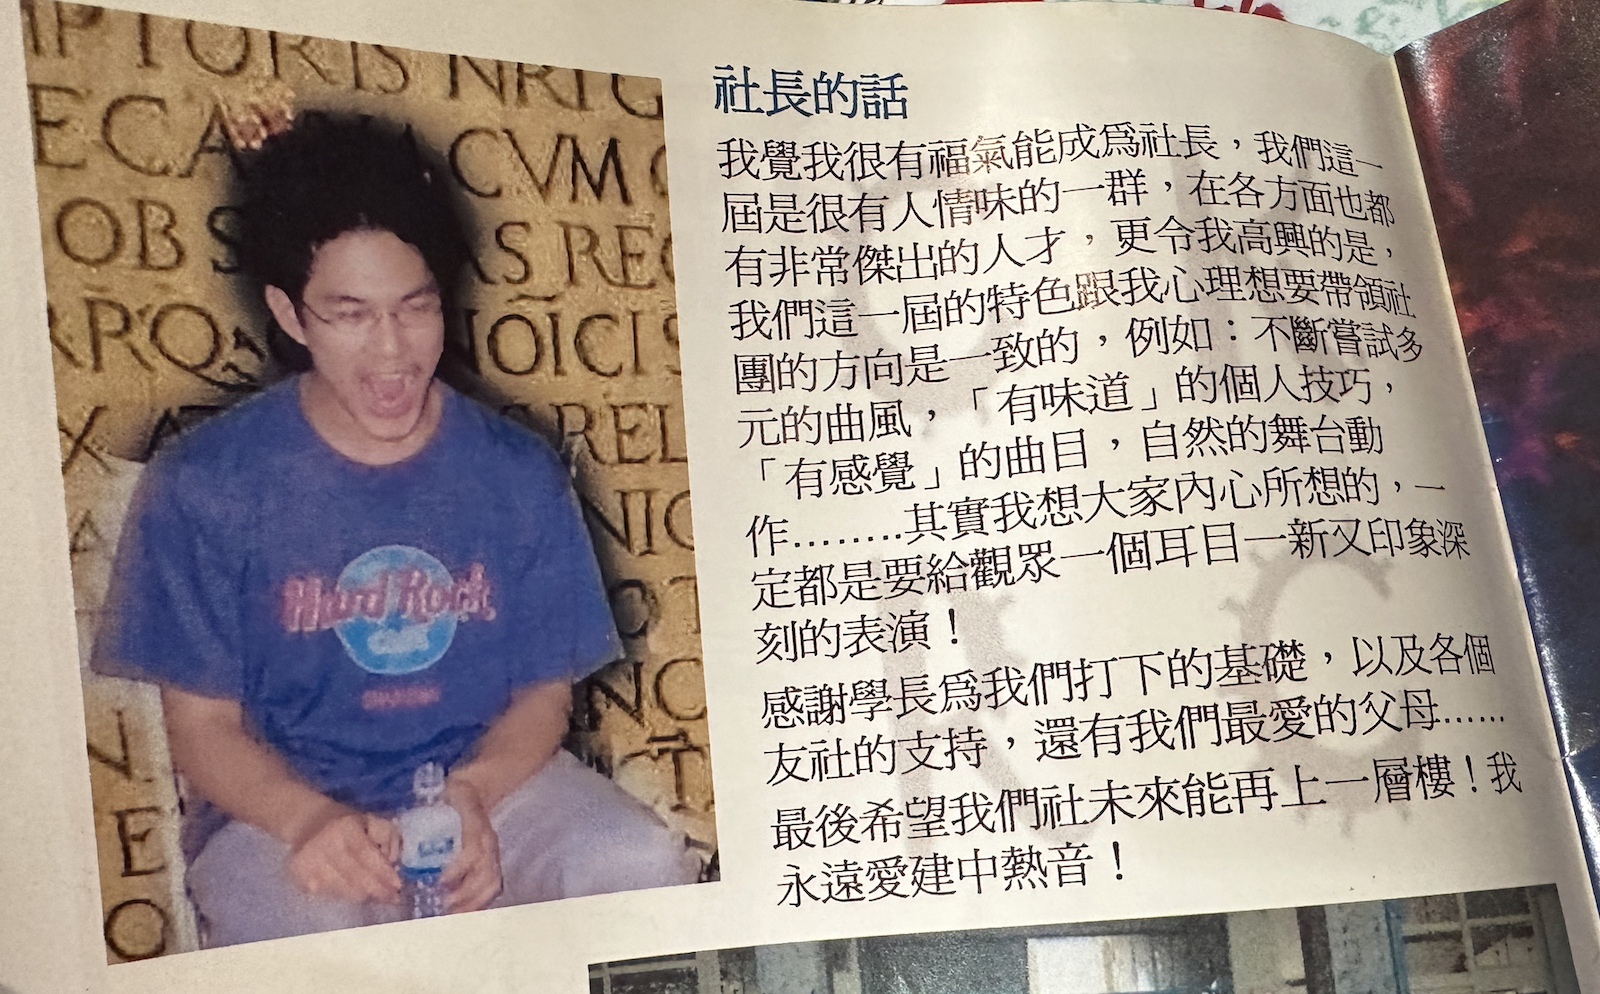 社長的話
我覺我很有福氣能成為社長，我們這一
屆是很有人情味的一群，在各方面也都
有非常傑出的人才，更令我高興的是，
我們這一屆的特色跟我心理想要帶領社
團的方向是一致的，例如：不斷嘗試多
元的曲風，「有味道」的個人技巧，
「有感覺」的曲目，自然的舞台動
作........其實我想大家內心所想的，一
定都是要給觀眾一個耳目一新又印象深
刻的表演！
感謝學長為我們打下的基礎，以及各個
友社的支持，還有我們最愛的父母......
最後希望我們社未來能再上一層樓！我
永遠愛建中熱音！
CVM
OB
REL
Hard Rock
Cafe